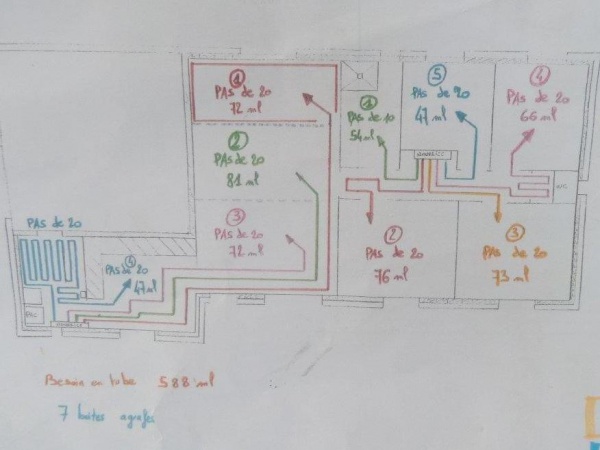 1
PAS de 20
72 ml
2
PAS de 20
81 ml
3
PAS de 20
72 ml
PAS de 20
4
PAS de 20
47 ml
1
PAS de 10
54 ml
5
PAS de 20
47 ml
4
PAS de 20
66 ml
WC
2
PAS de 20
76 ml
3
PAS de 20
73 ml
Besoin en tube 588 ml
7 boites agrafes